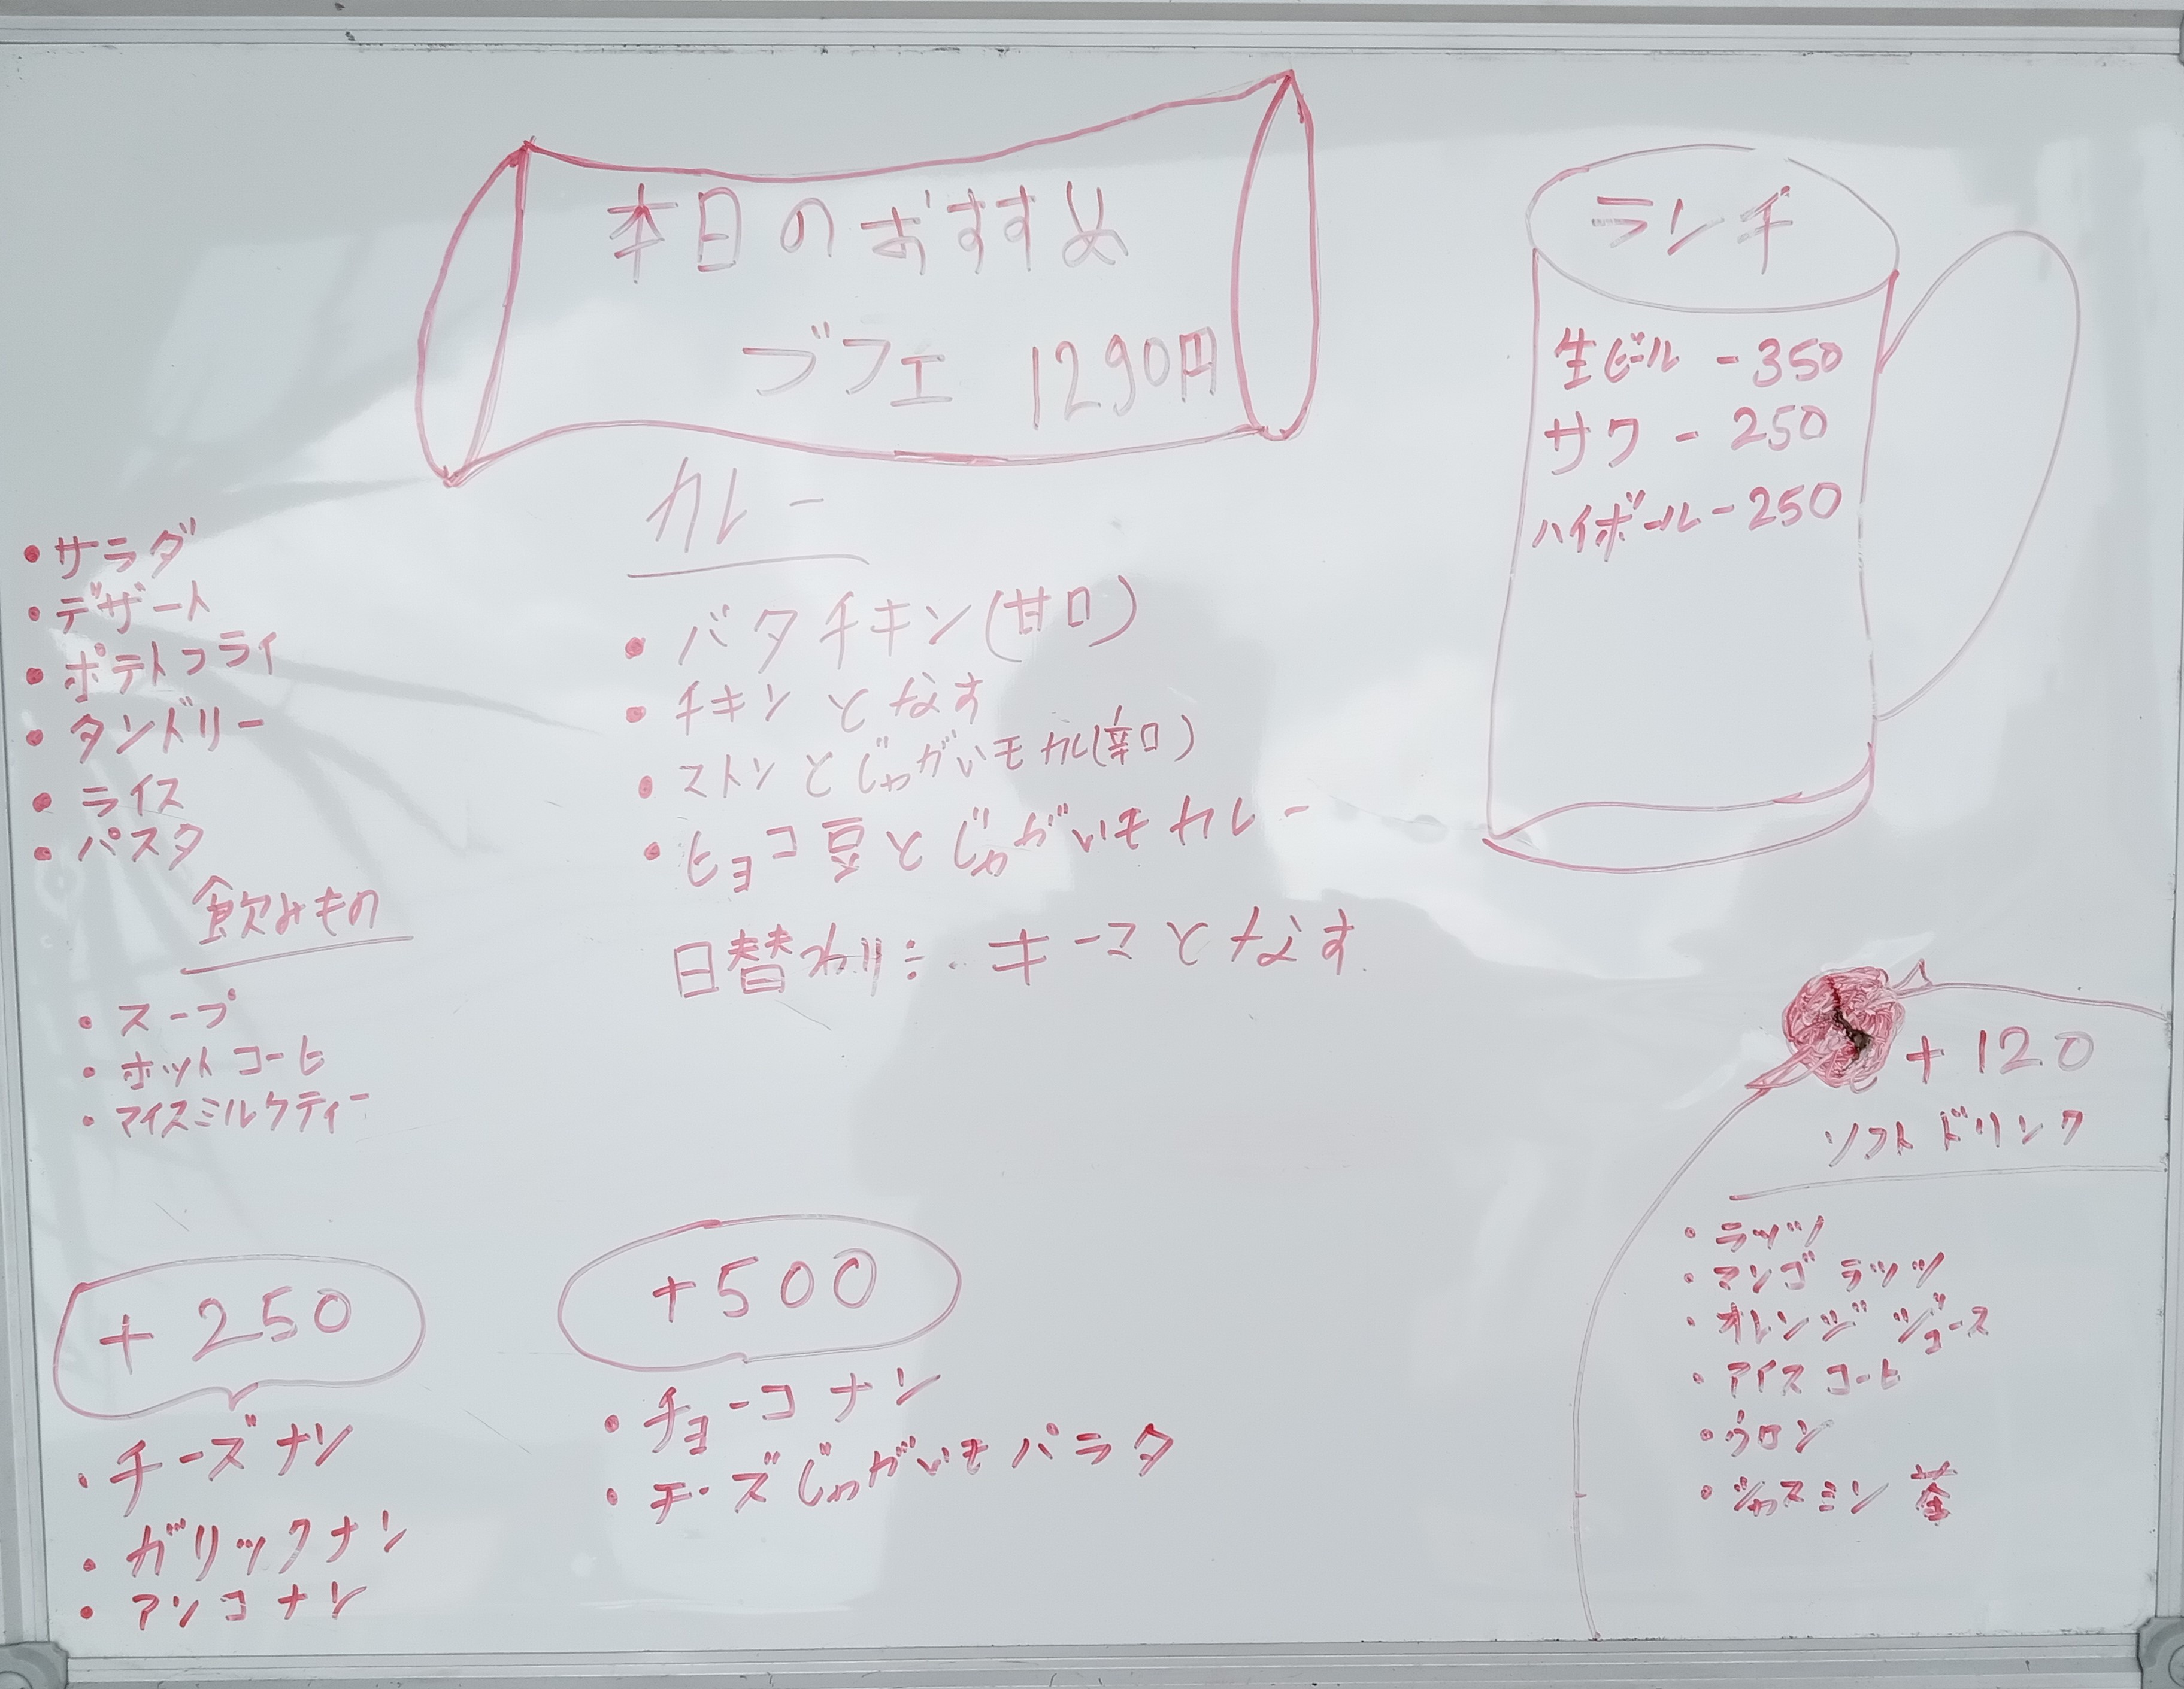 本日のおすすめ
ブフェ 1290円
ランチ
生ビール - 350
サワ - 250
ハイボール - 250
・サラダ
・デザート
・ポテトフライ
・タンドリー
・ライス
・パスタ
飲みもの
・スープ
・ホットコーヒ
・アイスミルクティー
カレー
・バタチキン(甘口)
・チキンとなす
・マトンとじゃがいもカレ(辛口)
・ヒヨコ豆とじゃがいもカレー
日替わり:・キーマとなす
+ 250
・チーズナン
・ガリックナン
・アンコナン
+500
・チョーコナン
・チーズじゃがいもパラタ
+ 120
ソフトドリンク
・ラッツ
・マンゴラッツ
・オレンジジュース
・アイスコーヒ
・ウロン
・ジャスミン茶